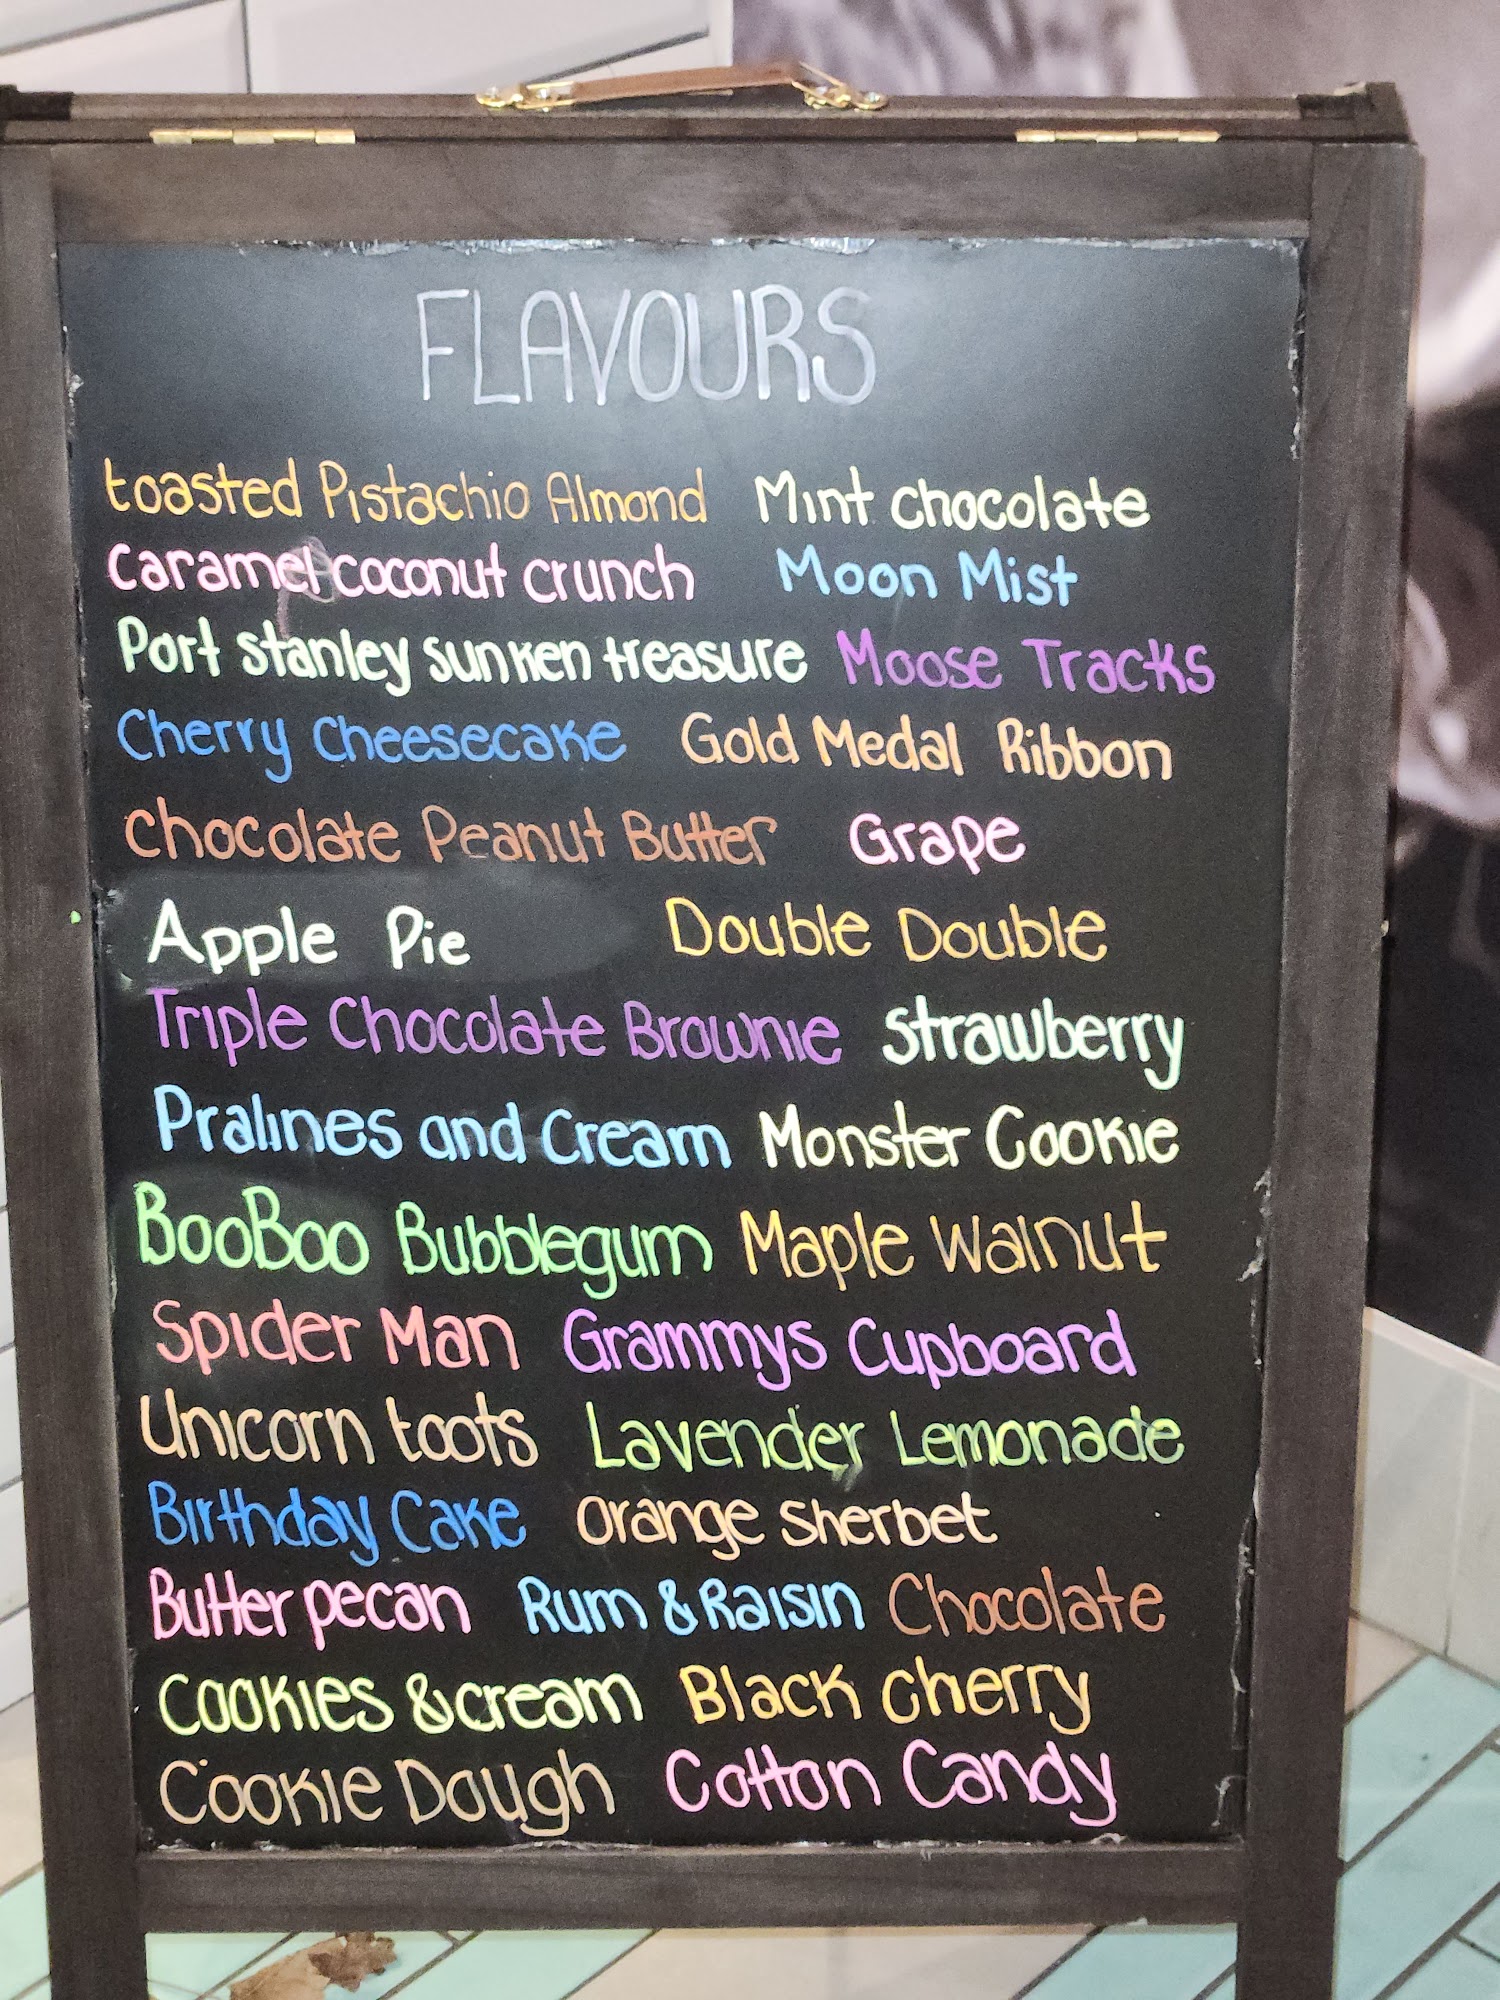 FLAVOURS
toasted Pistachio Almond Mint chocolate
caramel coconut crunch Moon Mist
Port stanley sunken treasure Moose Tracks
Cherry Cheesecake Gold Medal Ribbon
Chocolate Peanut Butter Grape
Apple Pie Double Double
Triple Chocolate Brownie Strawberry
Pralines and Cream Monster Cookie
BooBoo Bubblegum Maple Walnut
Spider Man Grammys Cupboard
Unicorn toots Lavender Lemonade
Birthday Cake Orange Sherbet
Butter pecan Rum & Raisin Chocolate
Cookies & cream Black Cherry
Cookie Dough Cotton Candy